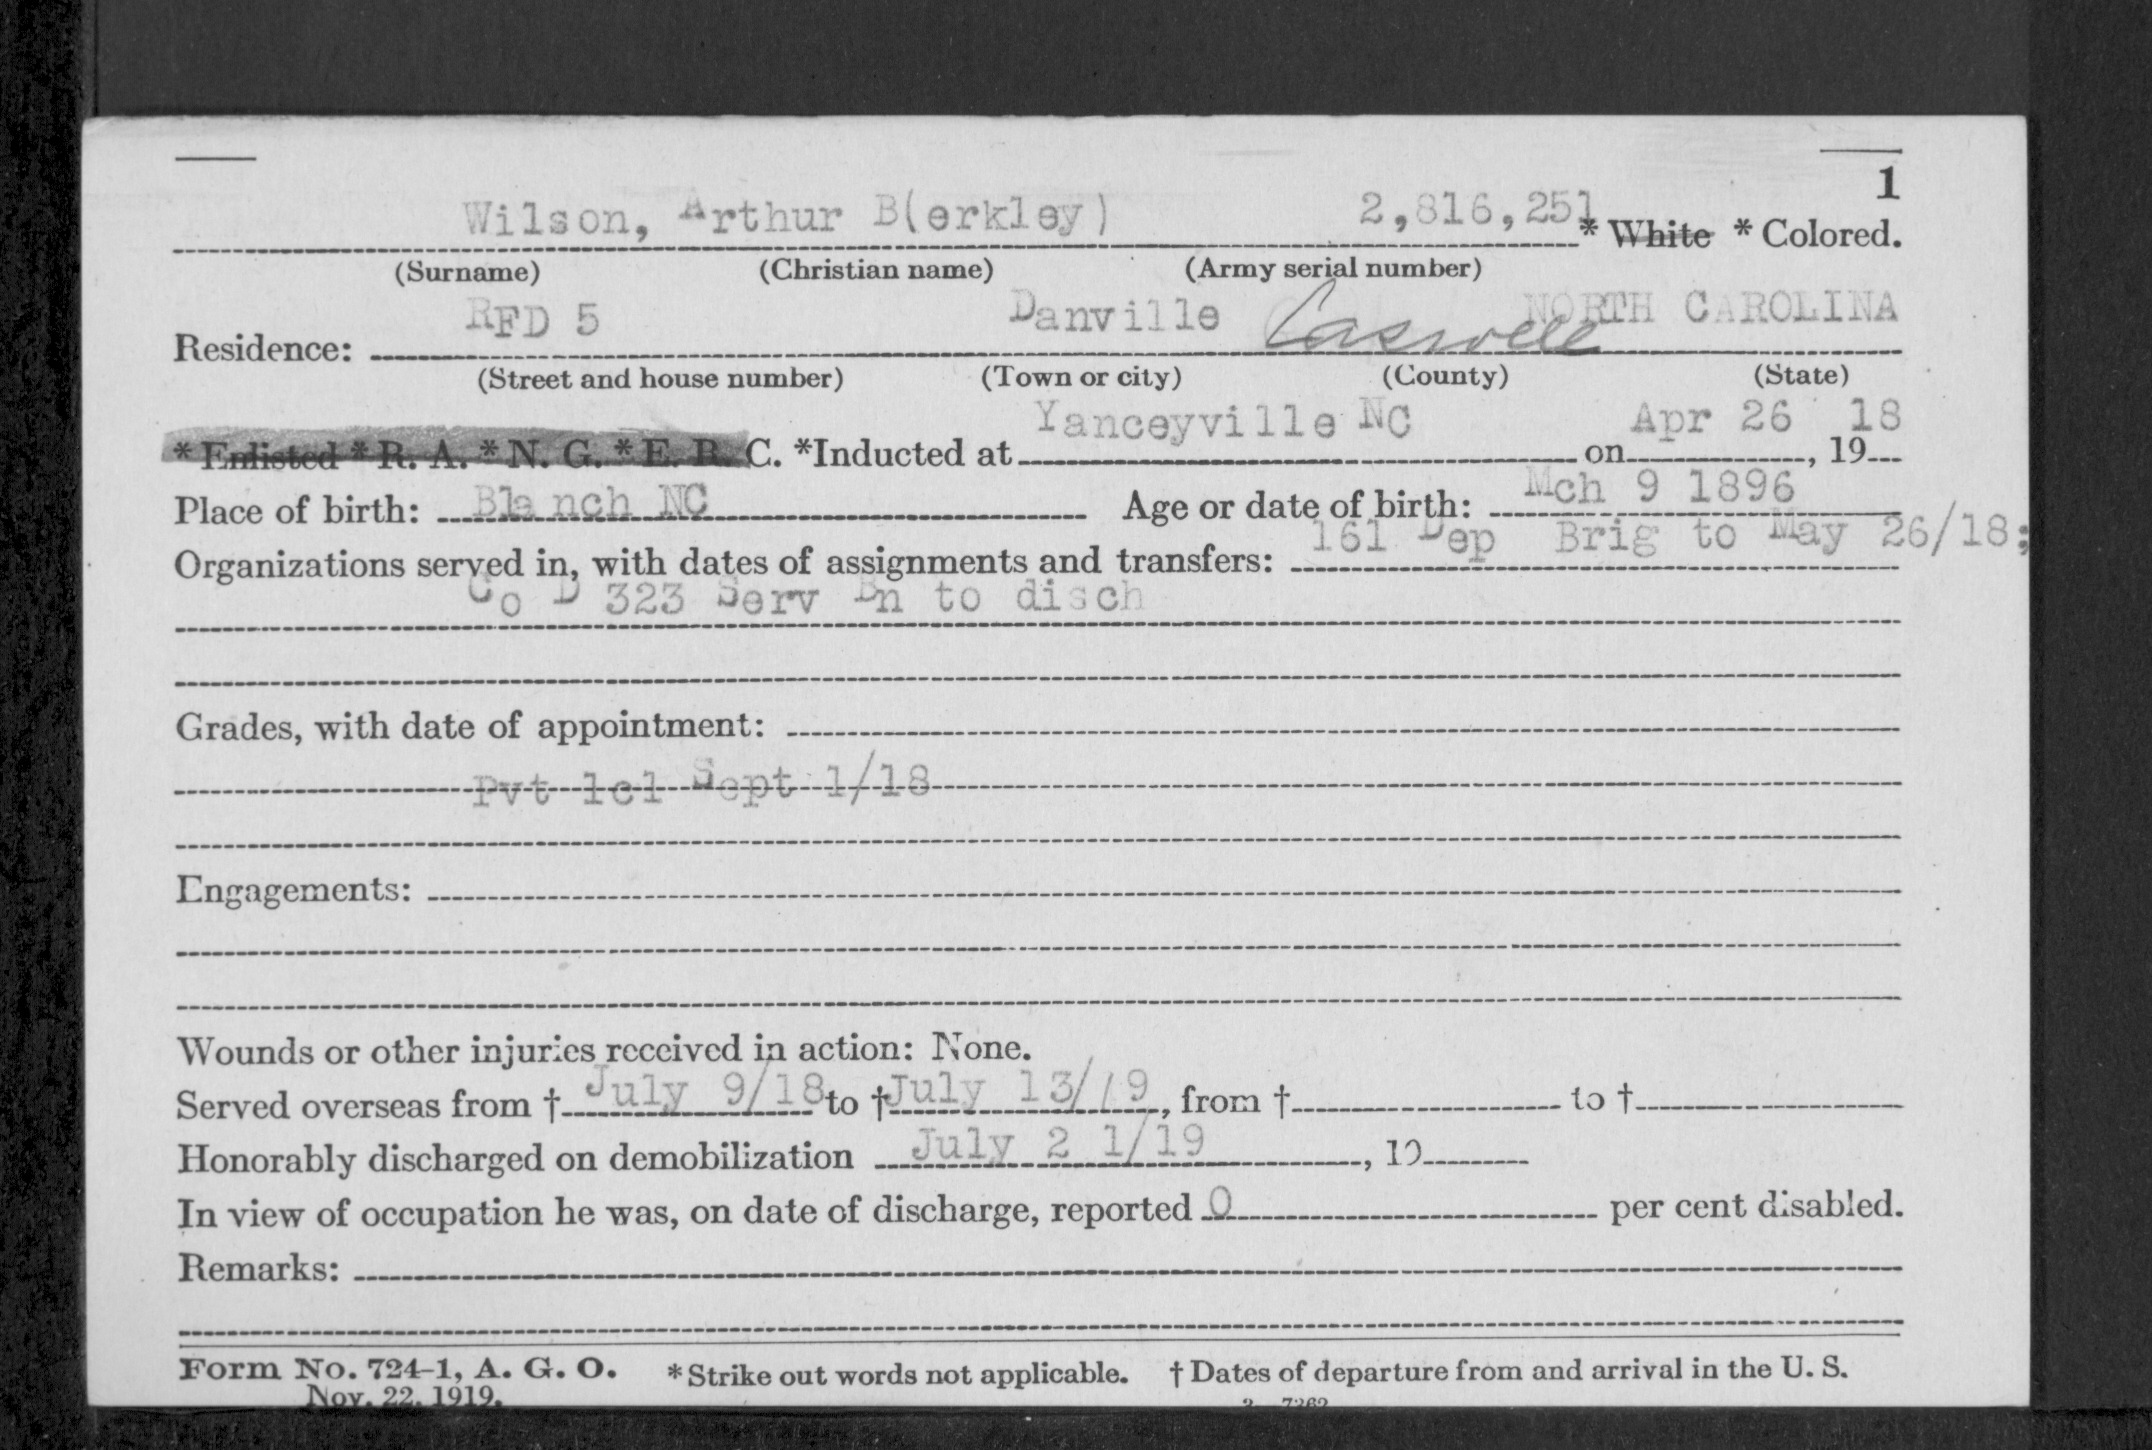 1
Wilson, Arthur B(erkley) 2,816,251 * White * Colored.
(Surname) (Christian name) (Army serial number)
Residence: RFD 5 Danville Caswell NORTH CAROLINA
(Street and house number) (Town or city) (County) (State)
* Enlisted * R. A. * N. G. * E. R. C. *Inducted at Yanceyville NC on Apr 26, 1918
Place of birth: Blanch NC Age or date of birth: Mch 9 1896
Organizations served in, with dates of assignments and transfers: 161 Dep Brig to May 26/18;
Co D 323 Serv Bn to disch
Grades, with date of appointment:
Pvt 1cl Sept 1/18
Engagements:
Wounds or other injuries received in action: None.
Served overseas from † July 9/18 to † July 13/19, from † to †
Honorably discharged on demobilization July 2 1/19, 19
In view of occupation he was, on date of discharge, reported 0 per cent disabled.
Remarks:
Form No. 724-1, A. G. O. * Strike out words not applicable. † Dates of departure from and arrival in the U. S.
Nov. 22, 1919. 3—7262